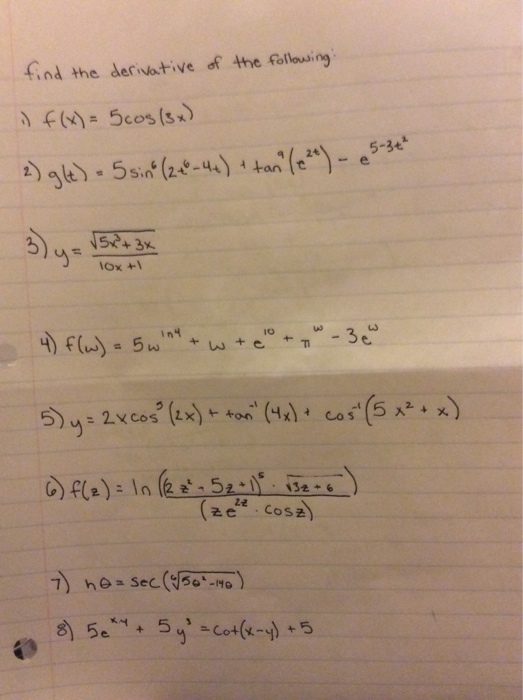 find the derivative of the following:
1) f(x) = 5cos(3x)
2) g(t) = 5 sin⁶(2t⁶-4t) + tan⁹(e²ᵗ) - e^(5-3t²)
3) y = √(5x³+3x) / (10x+1)
4) f(w) = 5w^(ln4) + w + e¹⁰ + π^w - 3e^w
5) y = 2xcos³(2x) + tan⁻¹(4x) + cos⁻¹(5x² + x)
6) f(z) = ln((2z² - 5z+1)⁵ · √(3z+6) / (ze²ᶻ · cosz))
7) hθ = sec(⁶√(5θ²-14θ))
8) 5e^(xy) + 5y³ = cot(x-y) + 5